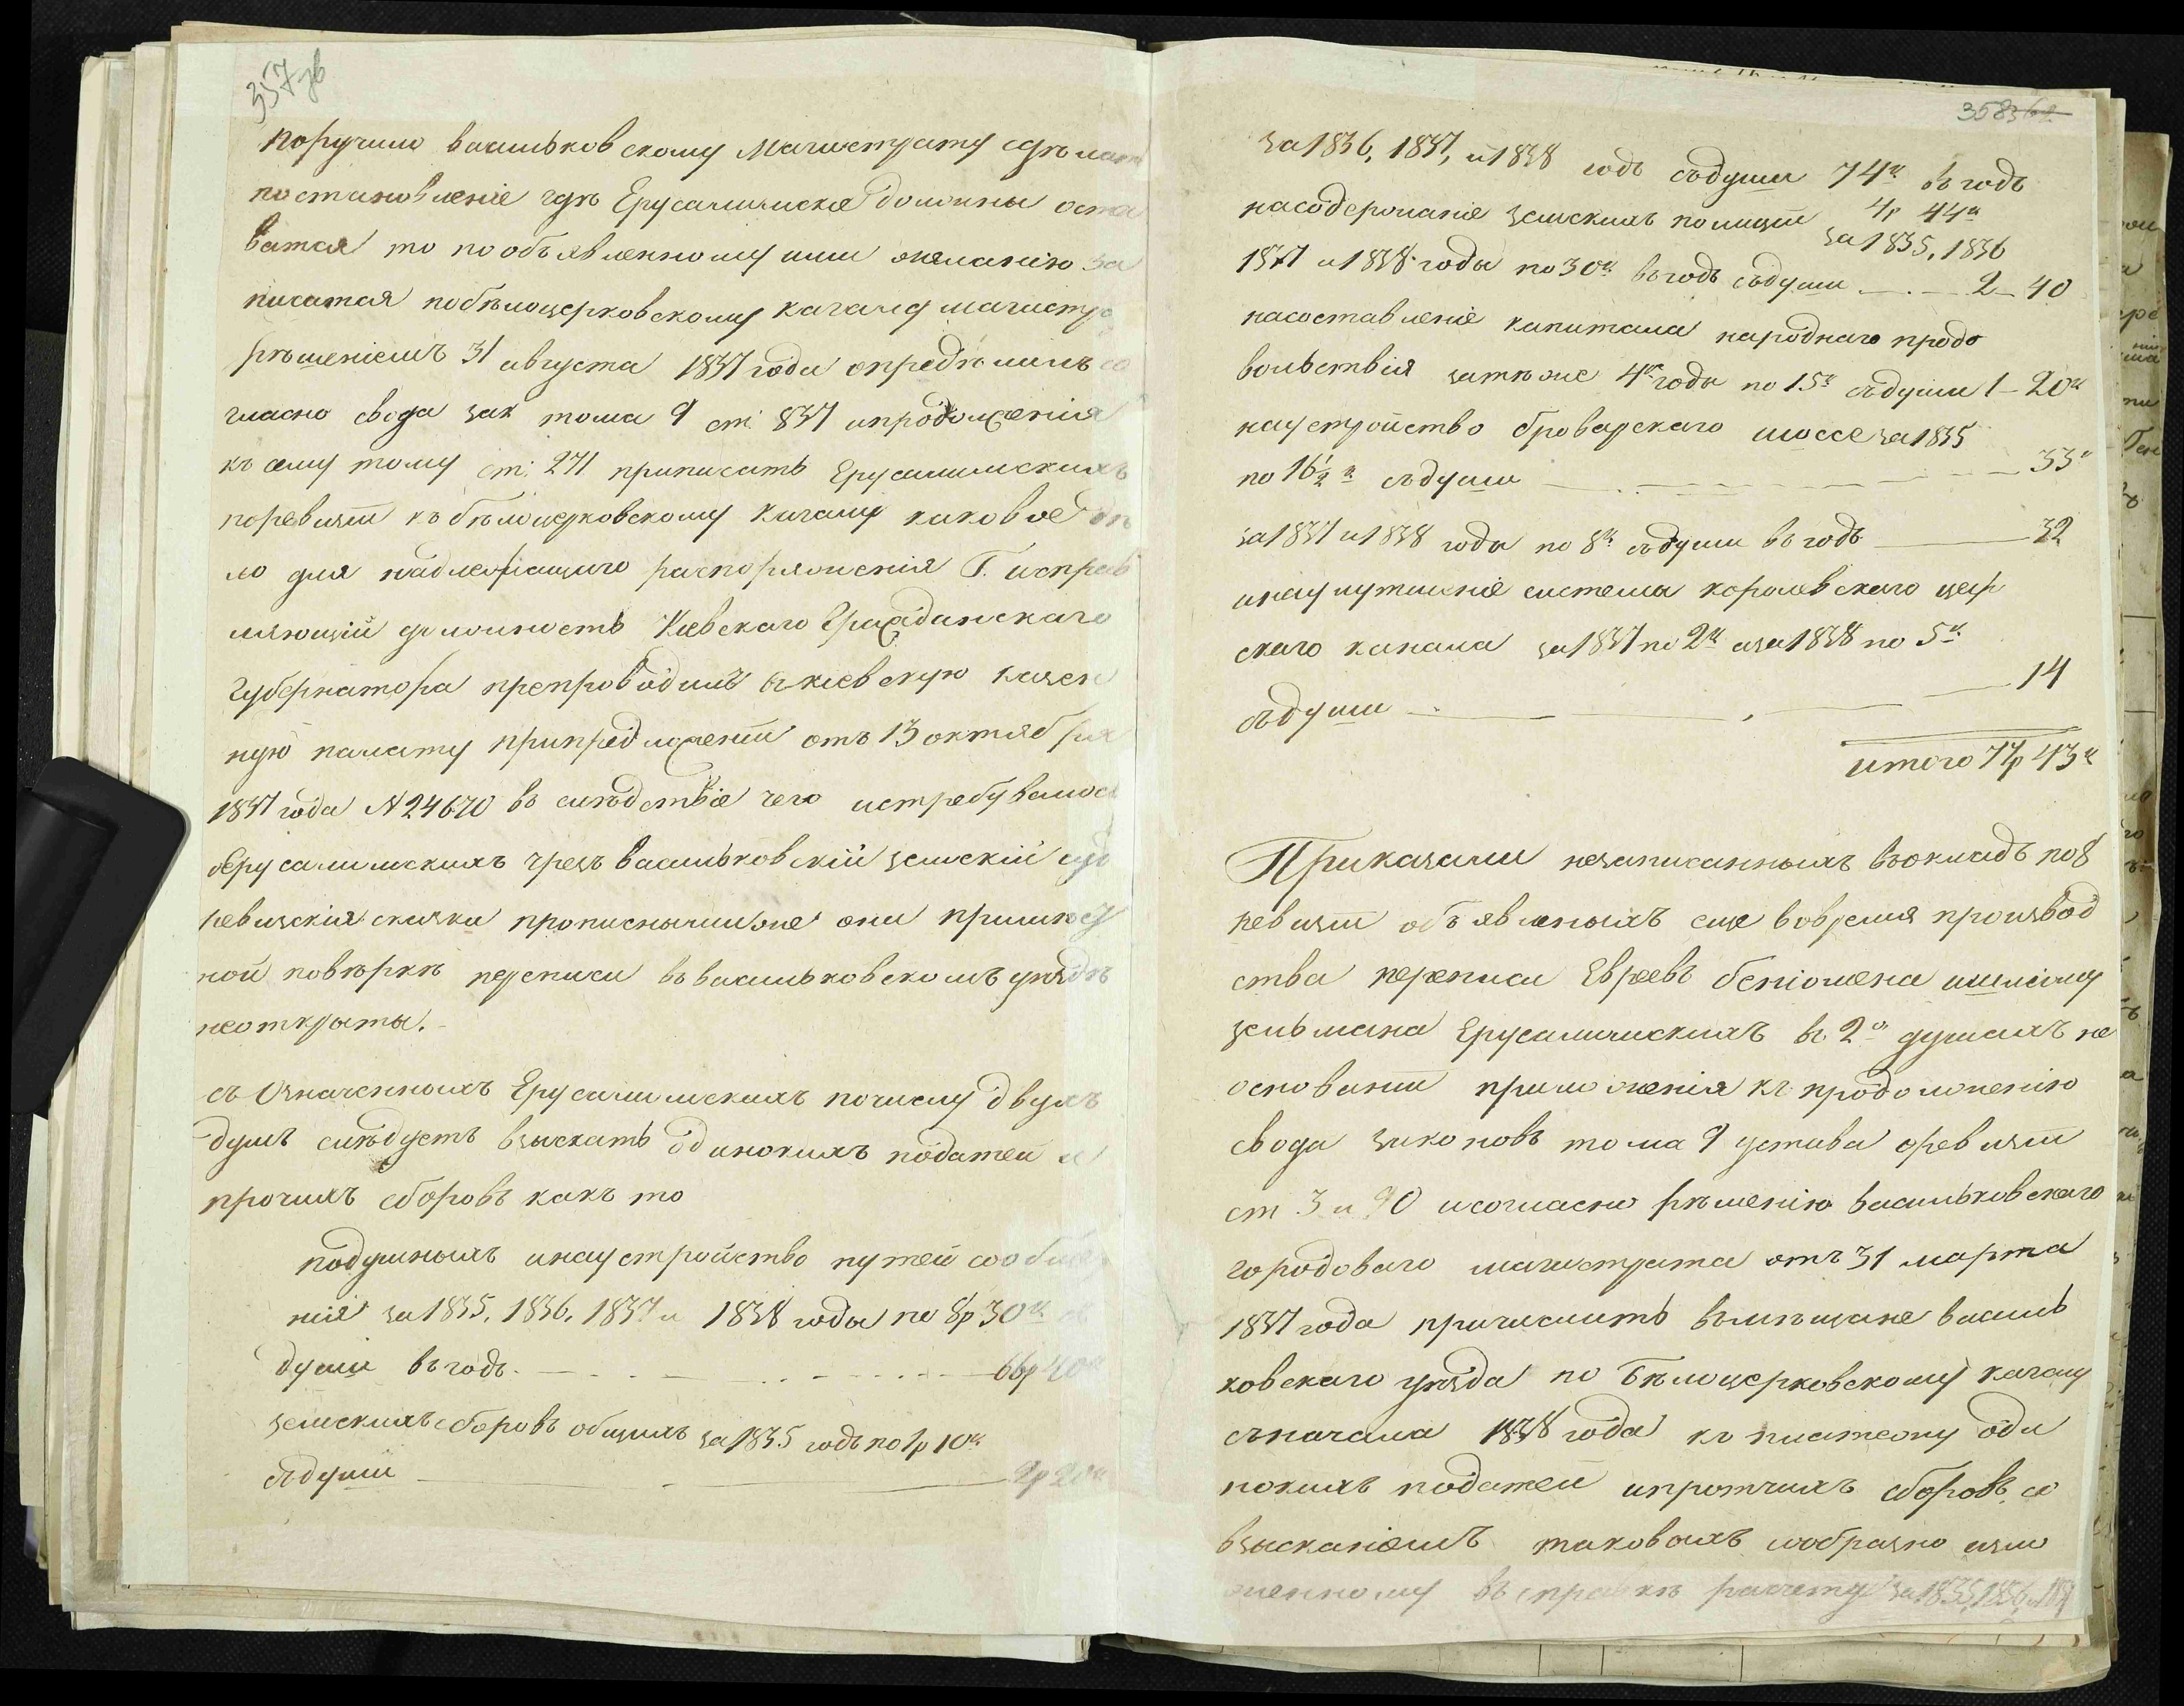 357 зв
поручило васильковскому Магистрату сделать
постановление где Ерусалимские должны оста
ватся то по объявленному ими желанію за
писатся по белоцерковскому кагалу магистра
решеніемъ 31 августа 1837 года определилъ со
гласно свода зак тома 9 ст: 837 и продолженія
къ сему тому ст: 271 приписать Ерусалимскихъ
по ревизіи къ белоцерковскому кагалу каковое де
ло для надлежащаго распоряженія Г. исправ
ляющій должность Кіевскаго Гражданскаго
Губернатора препроводилъ въ кіевскую казен
ную палату при предложеніи отъ 13 октября
1837 года N 24670 въ следствіе чего истребувалось
о Ерусалимскихъ чрезъ васильковскій земскій судъ
ревизскія сказки прописными же они при
ной поверке переписи въ васильковскомъ уезде
неоткрыты.
съ Означенныхъ Ерусалимскихъ по числу двухъ
душъ следуетъ взыскать одинокихъ податей и
прочихъ сборовъ какъ то
подушныхъ и на устройство путей сообще
нія за 1835, 1836, 1837 и 1838 годы по 8р 30к съ
души въ годъ. 66р 40к
земскихъ сборовъ общихъ за 1835 годъ по 1р 10к
съ души 2р 20к
358 362
за 1836, 1837, и 1838 годъ съ души 74к въ годъ
4р 44к
на содержаніе земскихъ полиціи за 1835, 1836
1837 и 1838 годы по 30к въ годъ съ души 2-40
на составленіе капитала народнаго продо
вольствія за те же 4ре года по 15к съ души 1-20к
на устройство броварскаго шоссе за 1835
по 16½к съ души 33к
за 1837 и 1838 года по 8к съ души въ годъ 32
и на улутшеніе системы королевскаго цер
скаго канала за 1837 по 2к а за 1838 по 5к
съ души 14
итого 77р 43к
Приказали незаписанныхъ въ окладъ по 8
ревизіи объявленыхъ еще вовремя производ
ства переписи Евреевъ беніомена и шліому
зельмана Ерусалимскихъ въ 2х душахъ на
основаніи приложенія къ продолженію
свода законовъ тома 9 устава о ревизіи
ст 3 и 90 и согласно решенію васильковскаго
городоваго магистрата отъ 31 марта
1837 года причислить въ мещане василь
ковскаго уезда по Белоцерковскому кагалу
съ начала 1838 года къ платежу оди
нокихъ податей и протчихъ сборовъ со
взысканіемъ таковыхъ сообразно изло
женному въ справке расчету за 1835, 1836, 1837